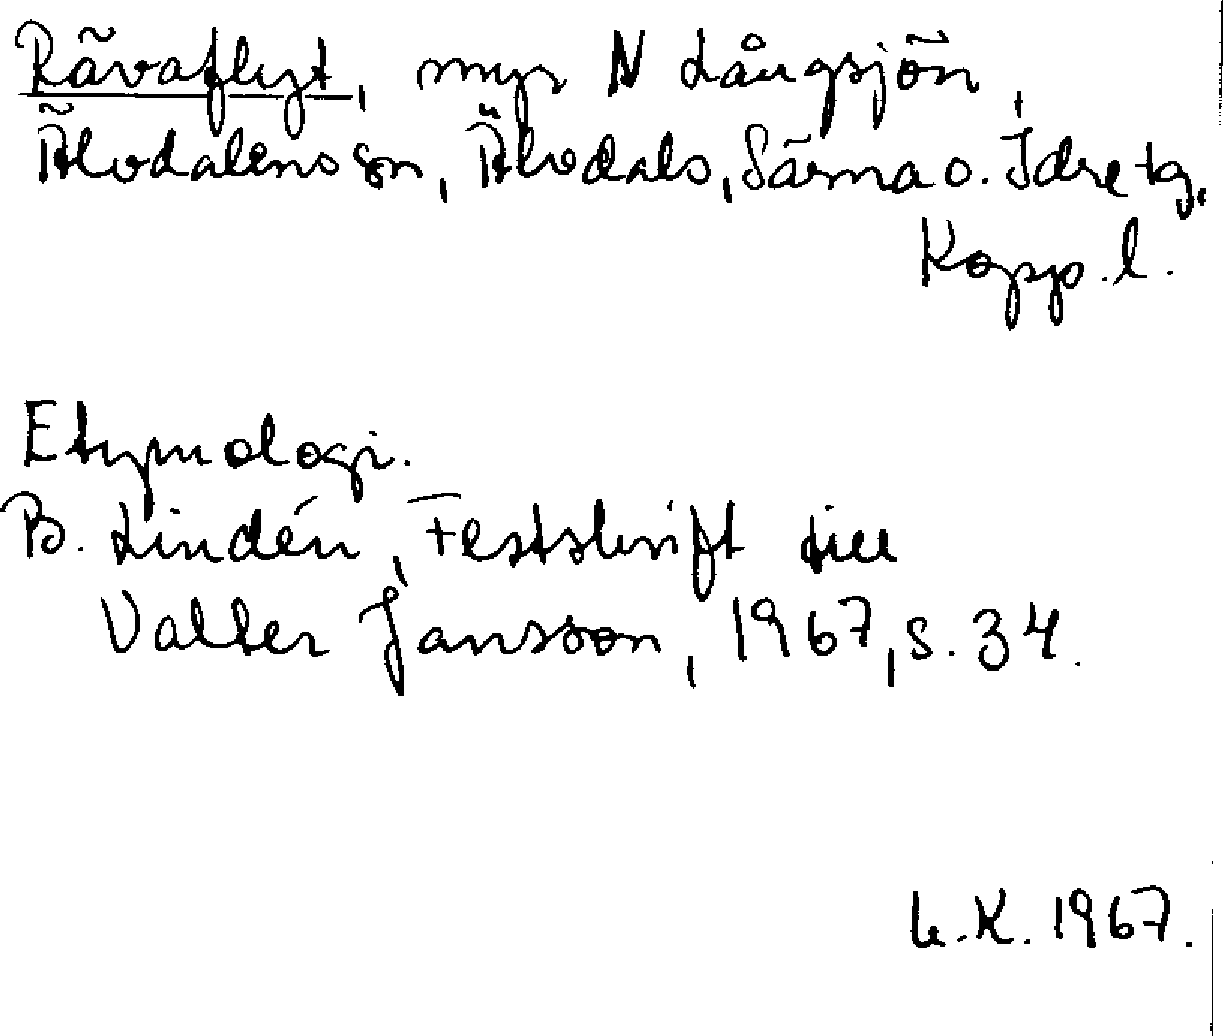 Rävaflyt, myr N Långsjön,
Älvdalens sn, Älvdals, Särna o. Idre tg,
Kopp. l.
Etymologi.
B. Lindén, Festskrift till
Valter Jansson, 1967, s. 34.
K. 1967.